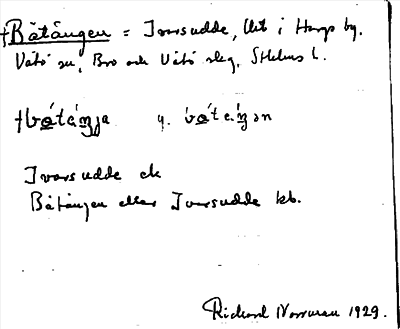 †Båtängen = Ivarsudde, Utö i Hargs by.
Vätö sn, Bro och Vätö slg, Sthlms l.
†bǻtáŋja y. bǻtáŋən
Ivarsudde ek
Båtängen eller Ivarsudde kb.
Richard Norrman 1929.